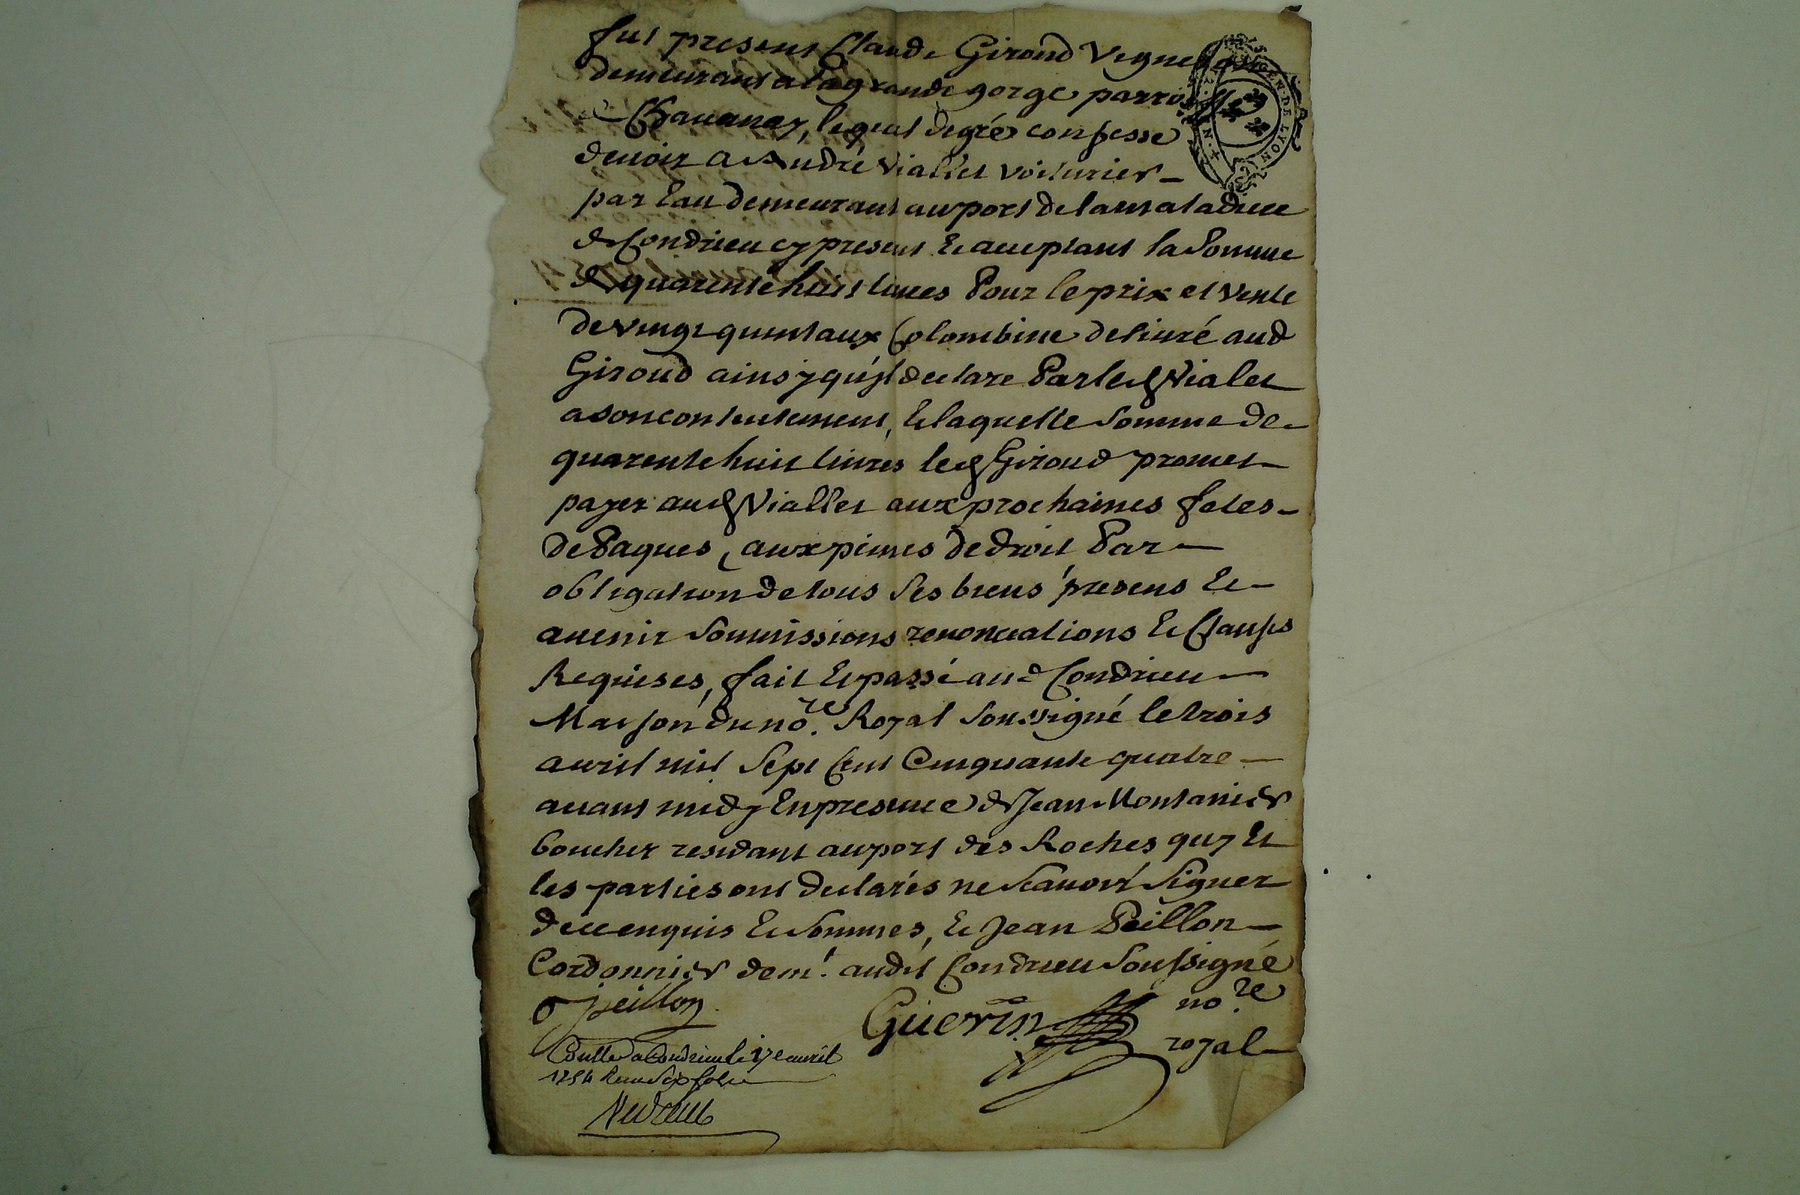 fut present Claude Giroud Vigneron
demeurant a la grande gorge parroisse
de Chauanay, lequel degré confesse
deuoir a André Viallet voiturier
par Eau demeurant au port de la maladiere
de Condrieu cy present & acceptant la Somme
de quarente huit liures Pour le prix et vente
de vingt quintaux Colombine deliuré aud
Giroud ainsy qu'il declare Par led Viallet
a son contentement, & laquelle Somme de
quarente huit liures led Giroud promet
payer aud Viallet aux prochaines fetes
de Paques, aux peines de droit Par
obligation de tous Ses biens presens &
auenir Soumissions renonciations & Clauses
Requises, fait & passé aud Condrieu
Maison du no.re Royal Soussigné le trois
auril mil Sept Cent Cinquante quatre
auant midy En presence de Jean Montanier
boucher residant au port des Roches quy Et
les parties ont declarés ne Scauoir Signer
de ce enquis & Sommés, & Jean Peillon
Cordonnier demt. audit Condrieu Soussigné
J peillon
Guerin no.re
royal
Contlé a Condrieu le 17e auril
1754 Receu Six sols
GEN. DE LYON